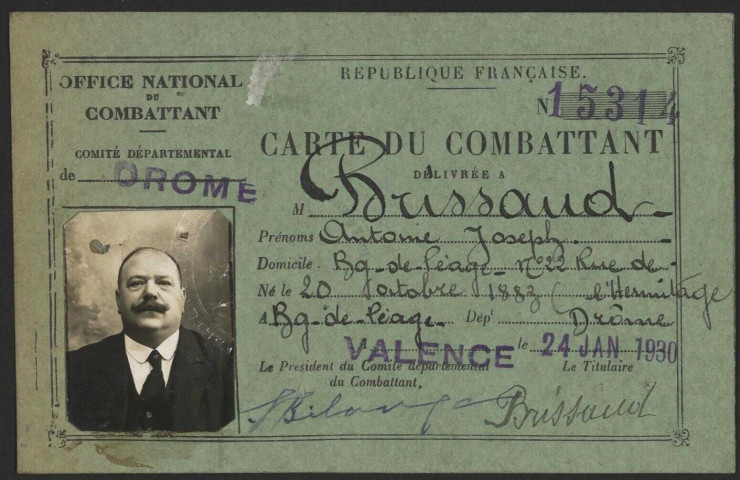 OFFICE NATIONAL
DU
COMBATTANT
COMITÉ DÉPARTEMENTAL
de DROME
REPUBLIQUE FRANÇAISE.
N 15314
CARTE DU COMBATTANT
DÉLIVRÉE A
M Brissaud
Prénoms Antoine Joseph
Domicile. Bg-de-Péage Nº 22 Rue de
Né le 20 octobre 1883 l'Hermitage
A Bg-de-Péage Dépt Drôme
VALENCE le 24 JAN 1930
Le Président du Comité départemental
du Combattant,
Le Titulaire
Brissaud